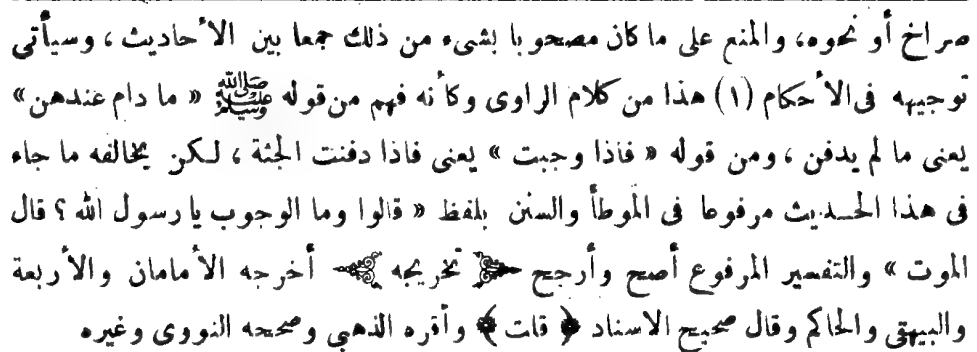 صراخ أو نحوه، والمنع على ما كان مصحوبا بشىء من ذلك جمعا بين الأحاديث، وسيأتى
توجيهه فى الأحكام (١) هذا من كلام الراوى وكأنه فهم من قوله ﷺ « ما دام عندهن»
يعنى ما لم يدفن، ومن قوله « فاذا وجبت » يعنى فاذا دفنت الجثة، لكن يخالفه ما جاء
فى هذا الحديث مرفوعا فى الموطأ والسنن بلفظ « قالوا وما الوجوب يا رسول الله؟ قال
الموت » والتفسير المرفوع أصح وأرجح ﴿ تخريجه ﴾ أخرجه الأمامان والأربعة
والبيهقى والحاكم وقال صحيح الاسناد ﴿ قلت ﴾ وأقره الذهبى وصححه النووى وغيره